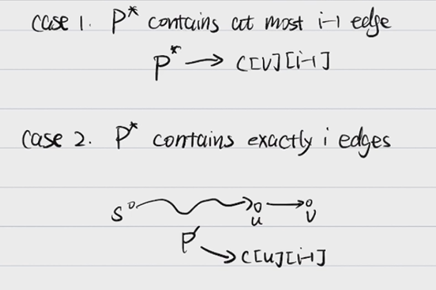 case 1. P* contains at most i-1 edge
P* → C[V][i-1]
case 2. P* contains exactly i edges
s u v
P' → C[u][i-1]